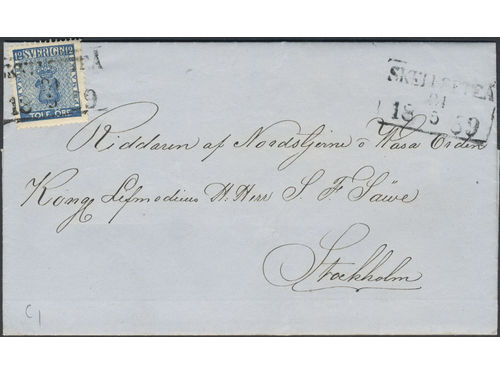 12 SVERIGE 12
TOLF ÖRE
SKELLEFTEÅ
21
18 5 59
SKELLEFTEÅ
21
18 5 59
Riddaren af Nordstjerne o Wasa Orden
Kong. Lifmedicus H. Herr S. F. Säwe
Stockholm
C1